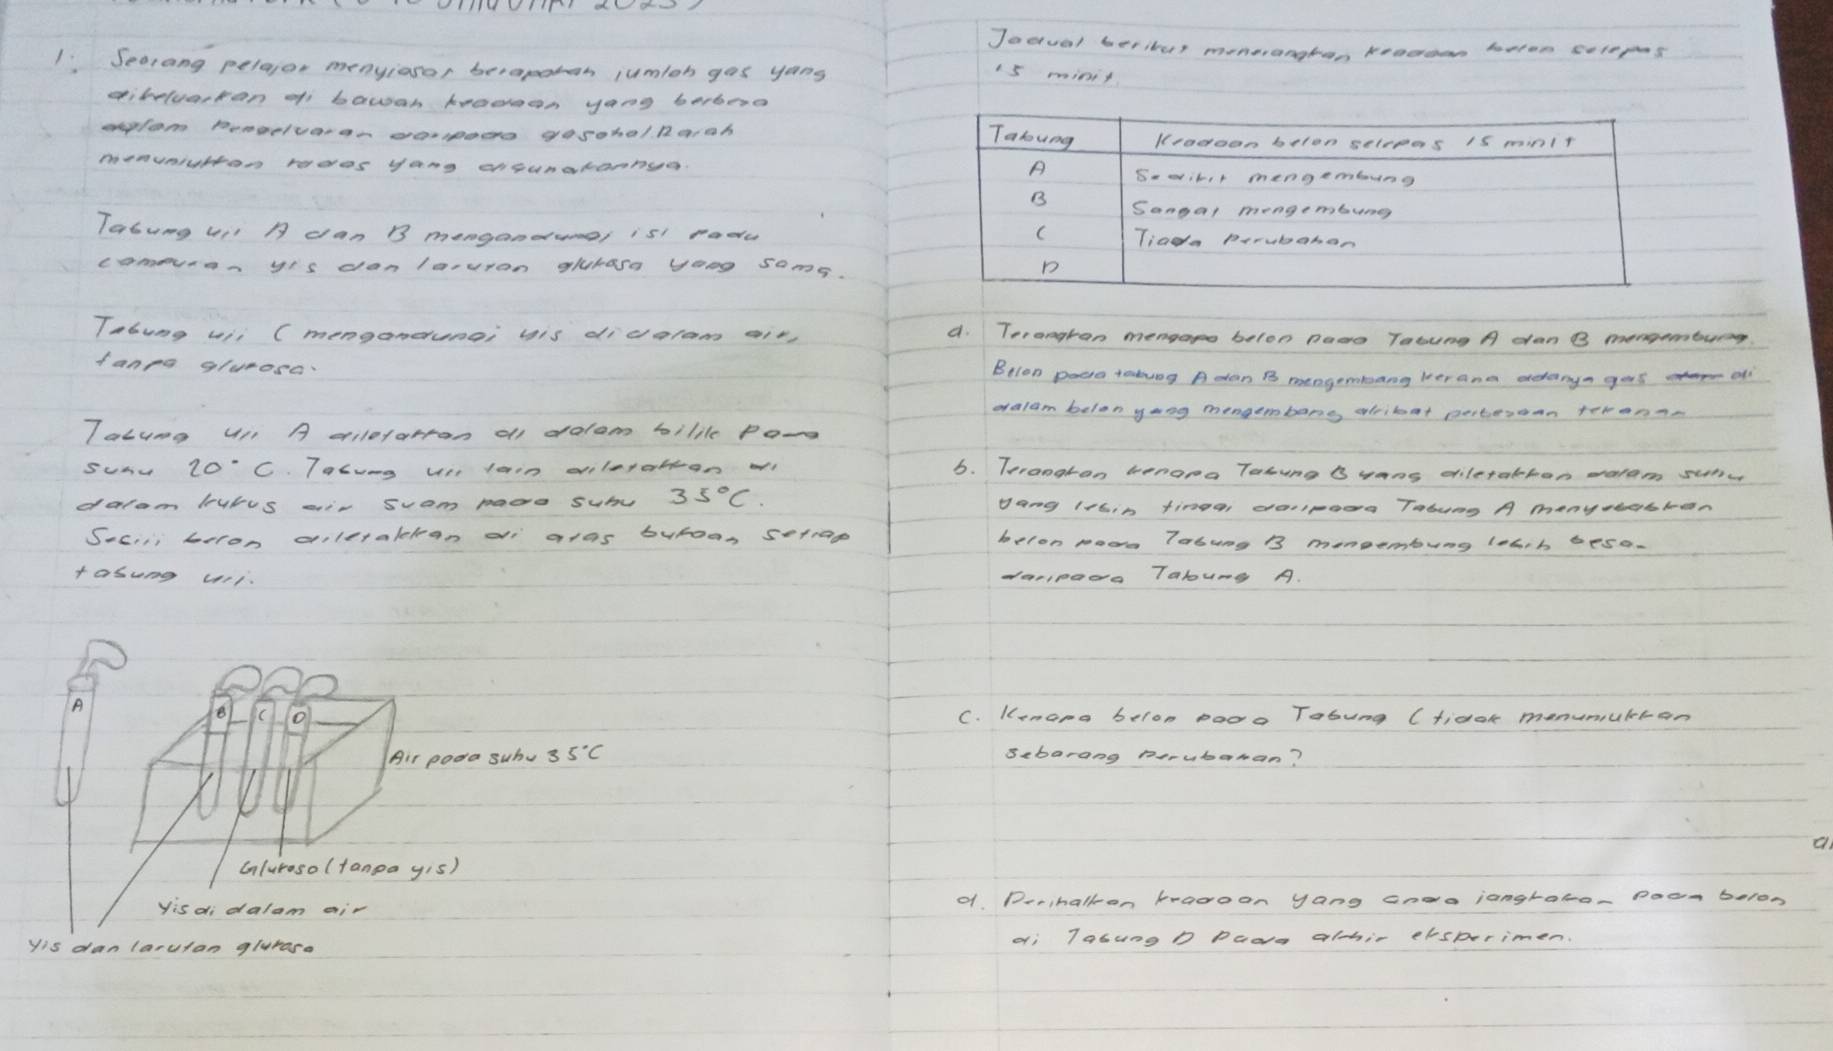 1. Seorang pelajar menyiasat berapakah jumlah gas yang
dikeluarkan di bawah keadaan yang berbeza
dalam Pengeluaran daripada gasohol. Rajah
menunjukkan radas yang digunakannya.
Tabung uji A dan B mengandungi isi padu
campuran yis dan larutan glukosa yang sama.
Tabung uji C mengandungi yis didalam air,
tanpa glukosa.
Tabung uji A diletakkan di dalam bilik pada
suhu 20°C. Tabung uji lain diletakkan di
dalam kukus air suam pada suhu 35°C.
Sebiji belon diletakkan di atas bukaan setiap
tabung uji.
A
B C D
Air pada suhu 35°C
Glukosa (tanpa yis)
Yis di dalam air
Yis dan larutan glukosa
Jadual berikut menerangkan keadaan belon selepas
15 minit.
Tabung Keadaan belon selepas 15 minit
A Sedikit mengembung
B Sangat mengembung
C Tiada Perubahan
D
a. Terangkan mengapa belon pada Tabung A dan B mengembung.
Belon pada tabung A dan B mengembang kerana adanya gas di
dalam belon yang mengembang akibat perbezaan tekanan
b. Terangkan kenapa Tabung B yang diletakkan dalam suhu
yang lebih tinggi daripada Tabung A menyebabkan
belon pada Tabung B mengembung lebih besar
daripada Tabung A.
c. Kenapa belon pada Tabung C tidak menunjukkan
sebarang Perubahan?
d. Perihalkan keadaan yang anda jangkakan pada belon
di Tabung D Pada akhir eksperimen.